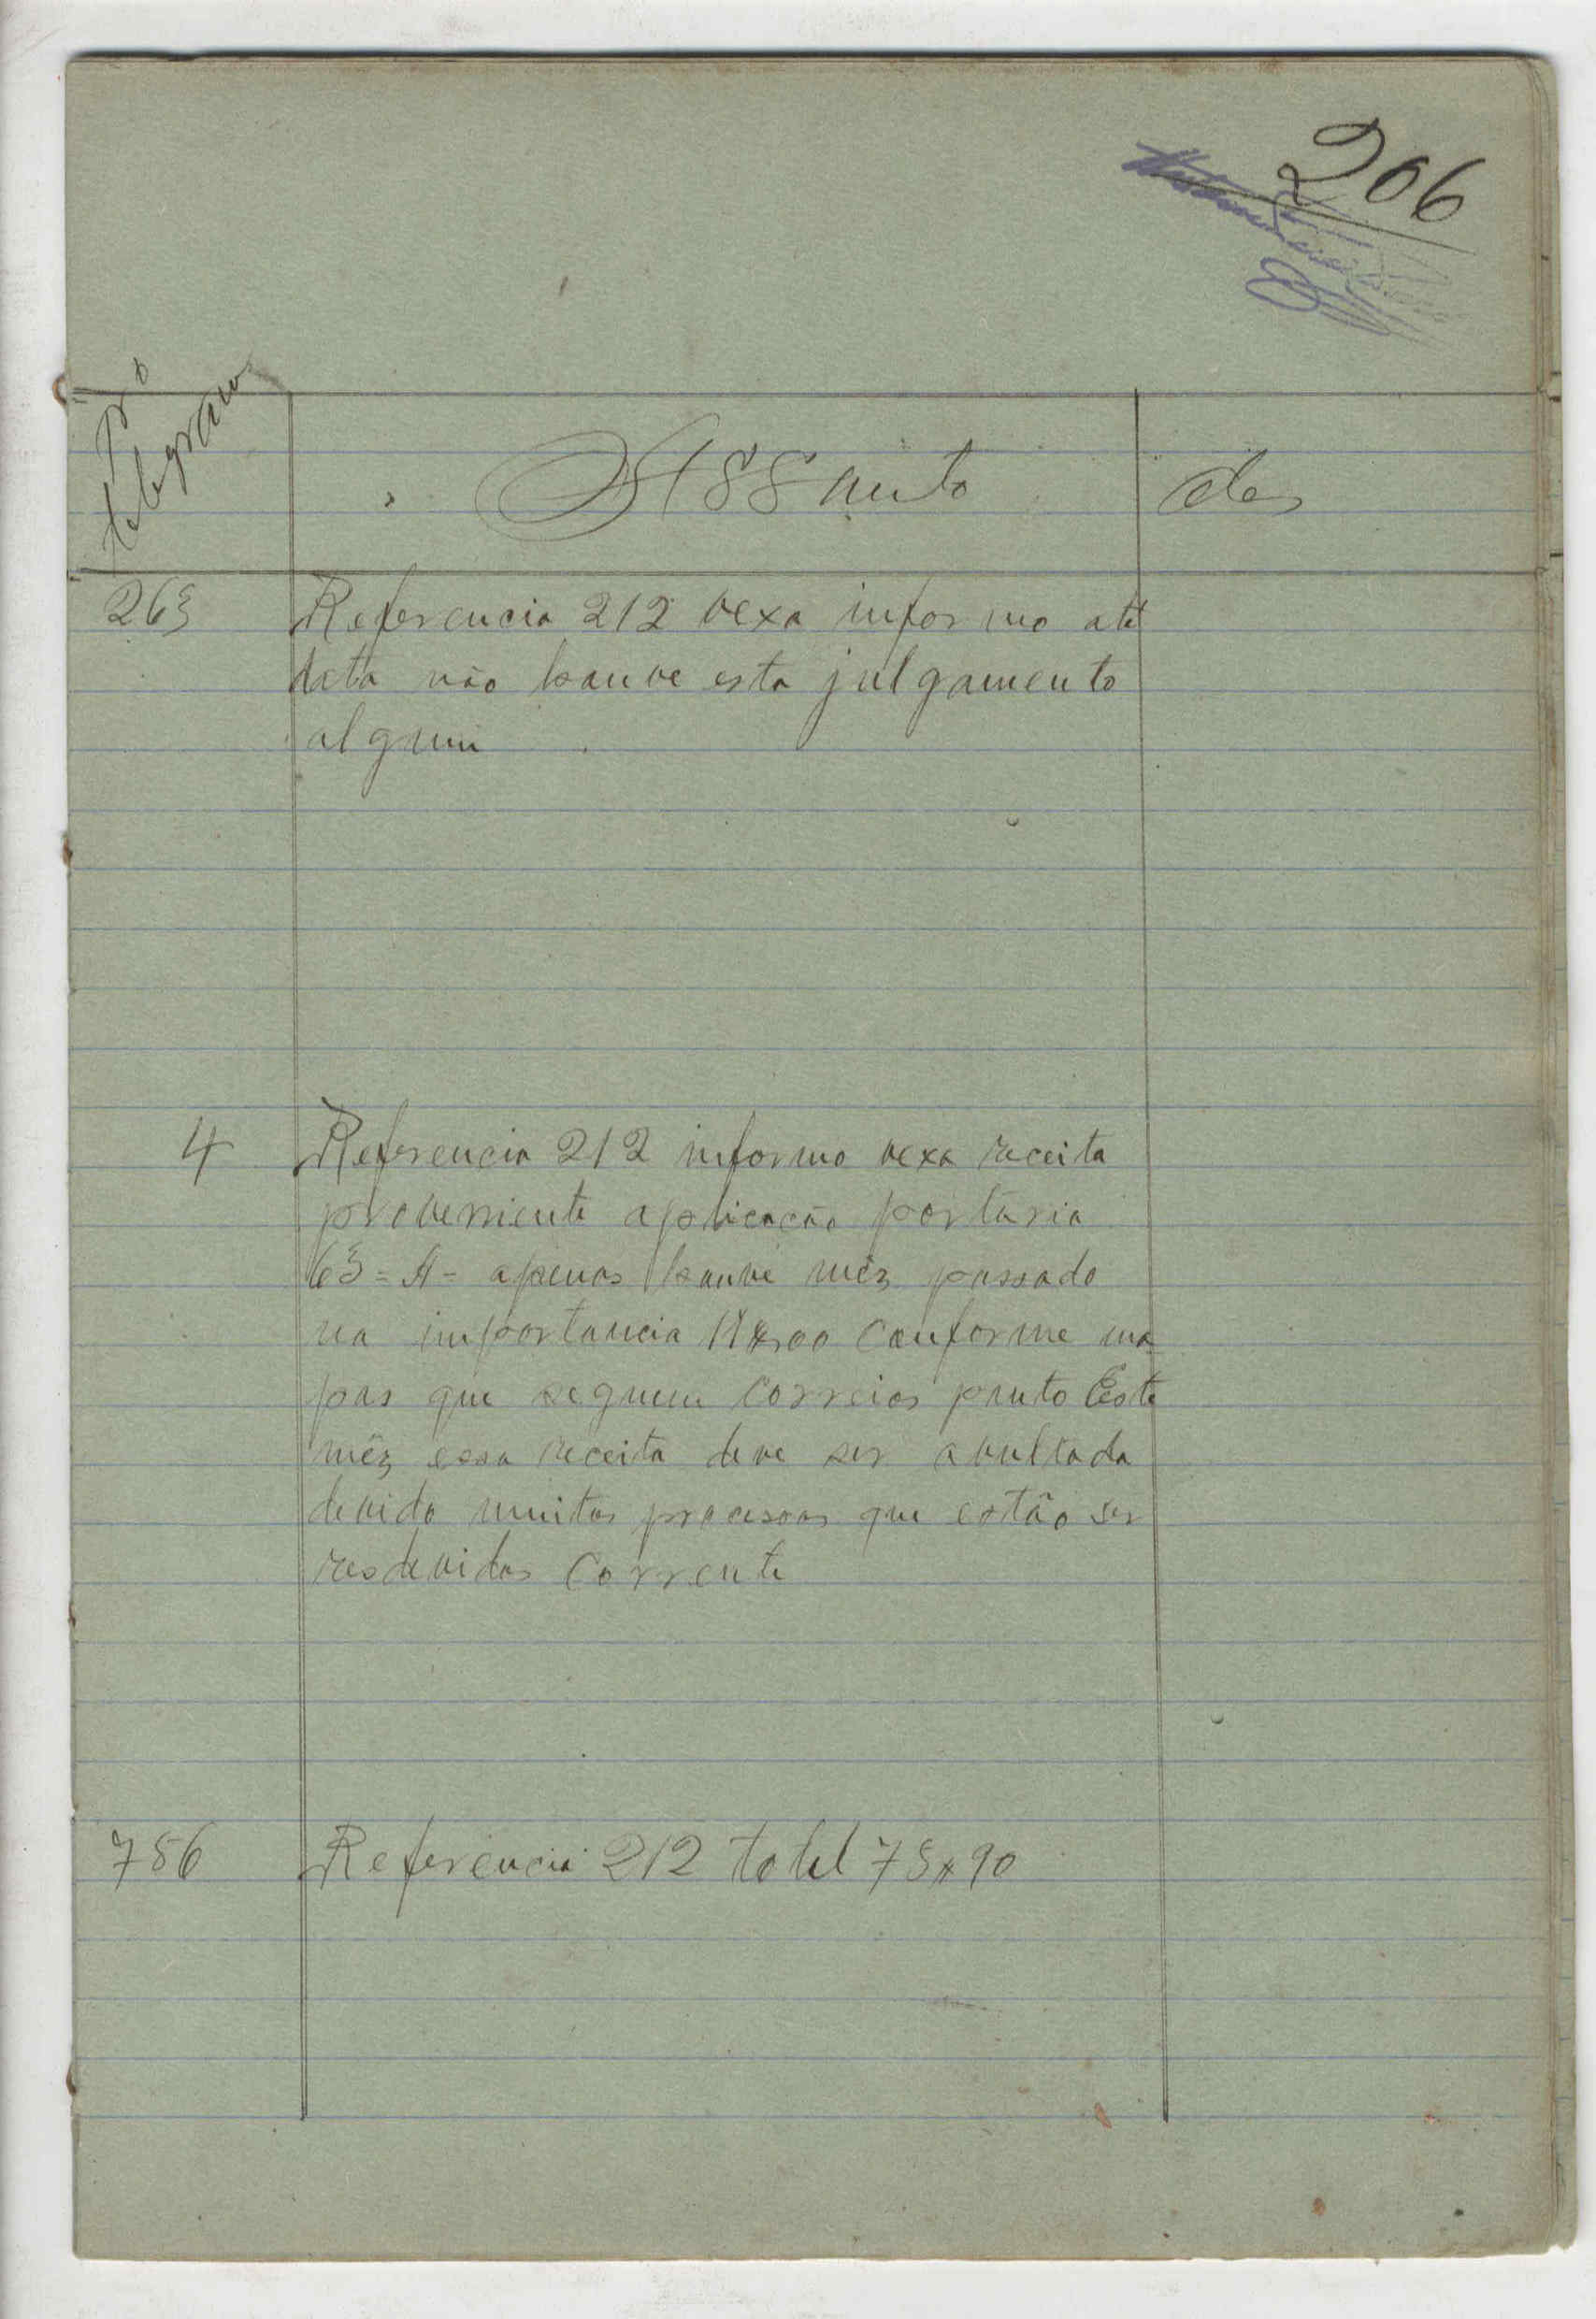 206
Nº
telegrama
Assunto
de
263
Referencia 212 vexa informo até
data não houve esta julgamento
algum
4
Referencia 212 informo vexa receita
proveniente aplicação portaria
63=A= apenas houve mêz passado
na importancia conforme ma
pas que seguem correios ponto Este
mêz essa receita deve ser avultada
devido muitos processos que estão ser
resolvidos corrente
786
Referencia 212 total